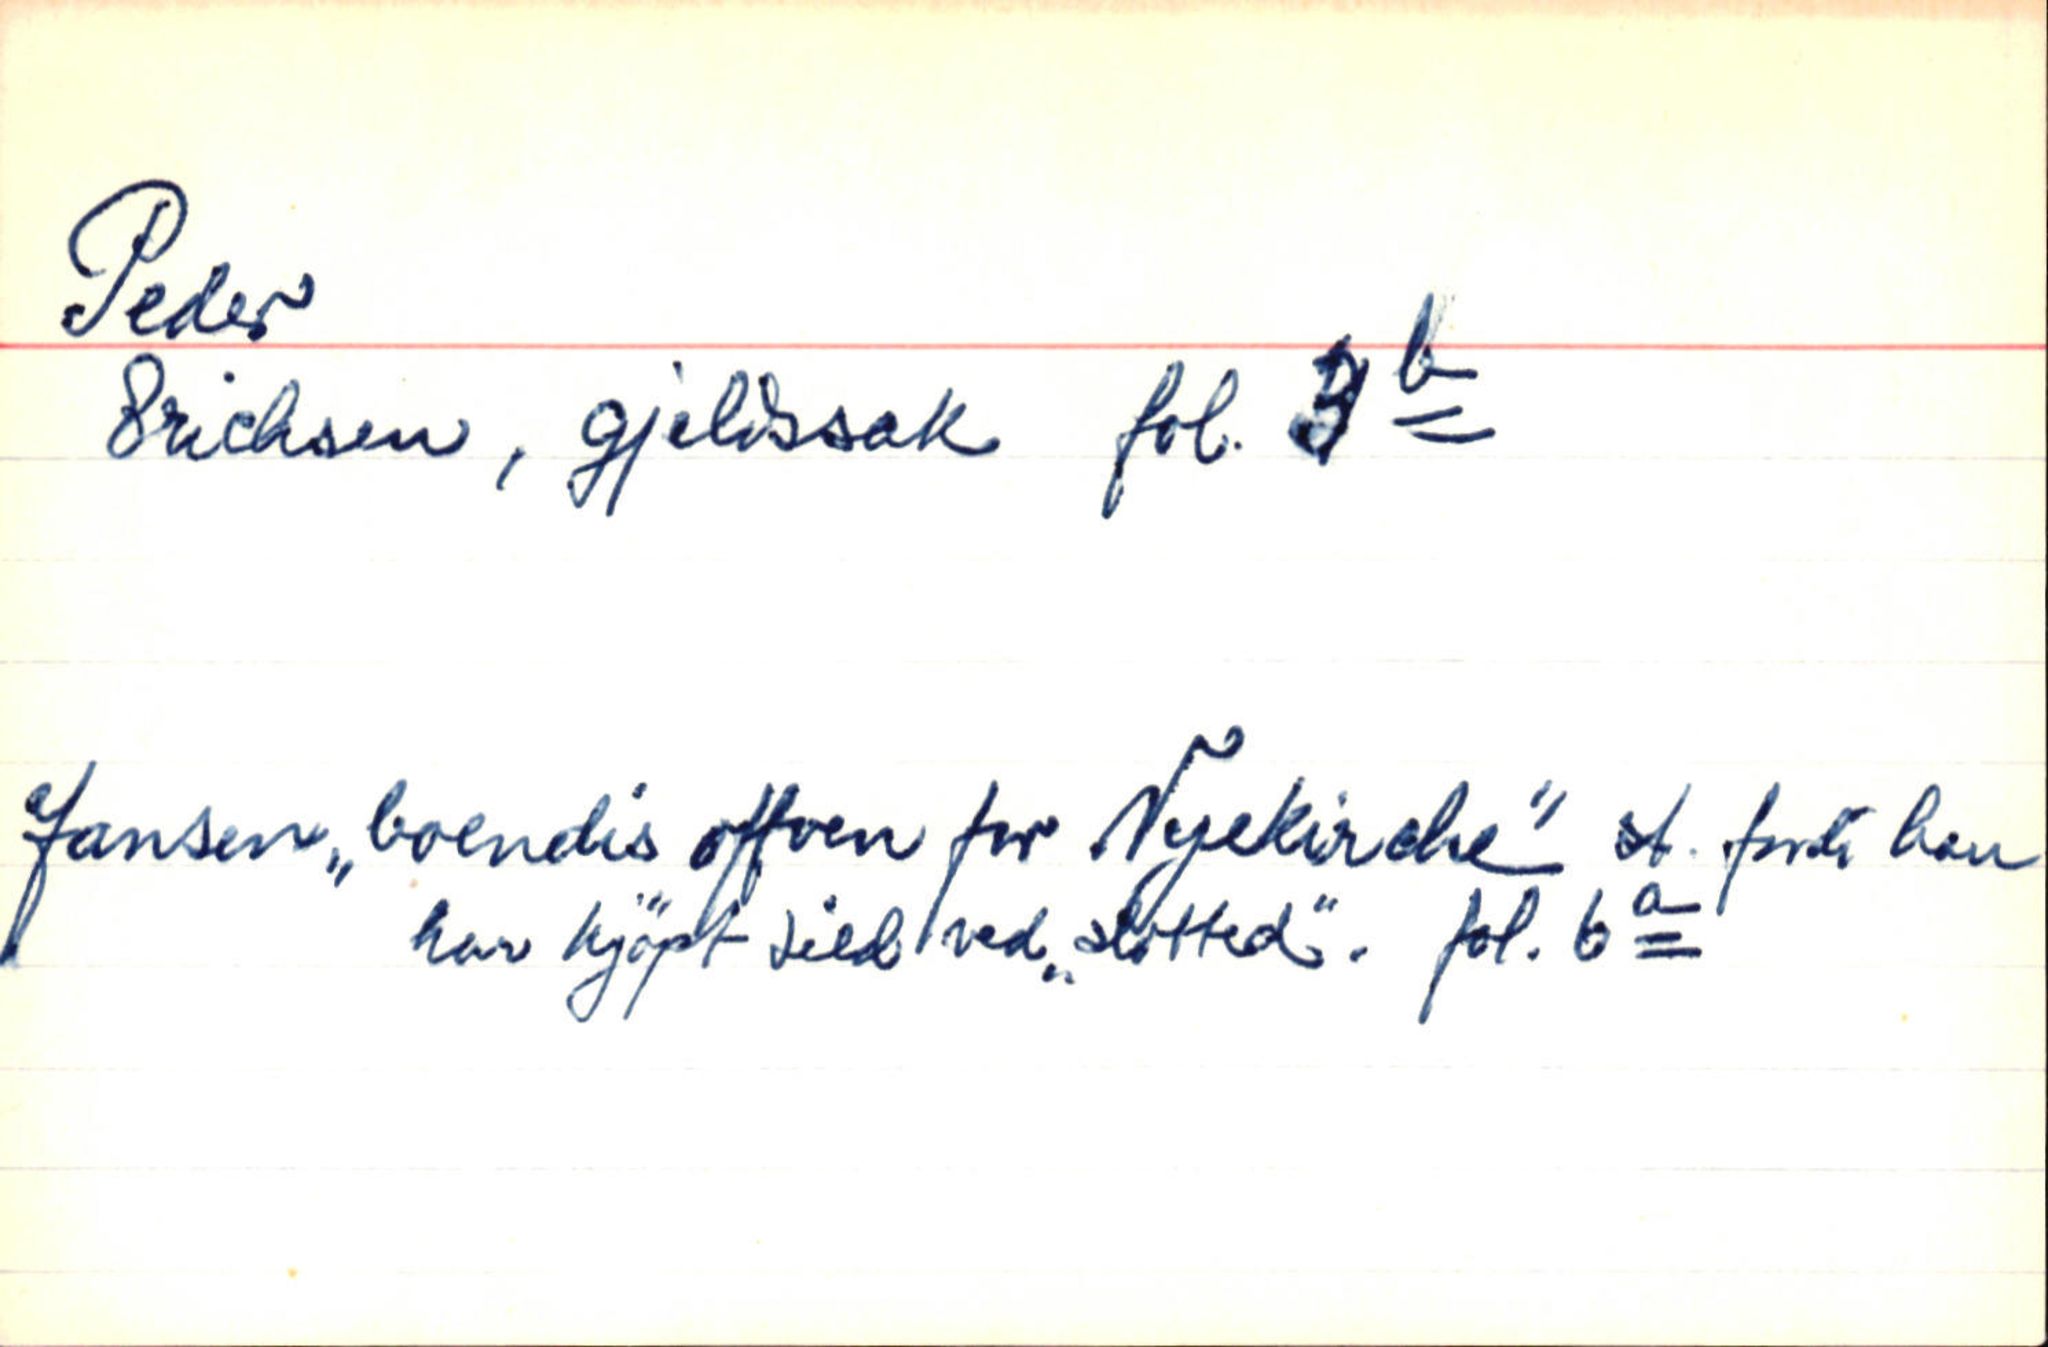 Peder
Erichsen, gjeldssak fol. 3 b
Jansen „boendis offven for Nyekirche" st. fordi han
har kjöpt sild ved „slotted". fol. 6 a